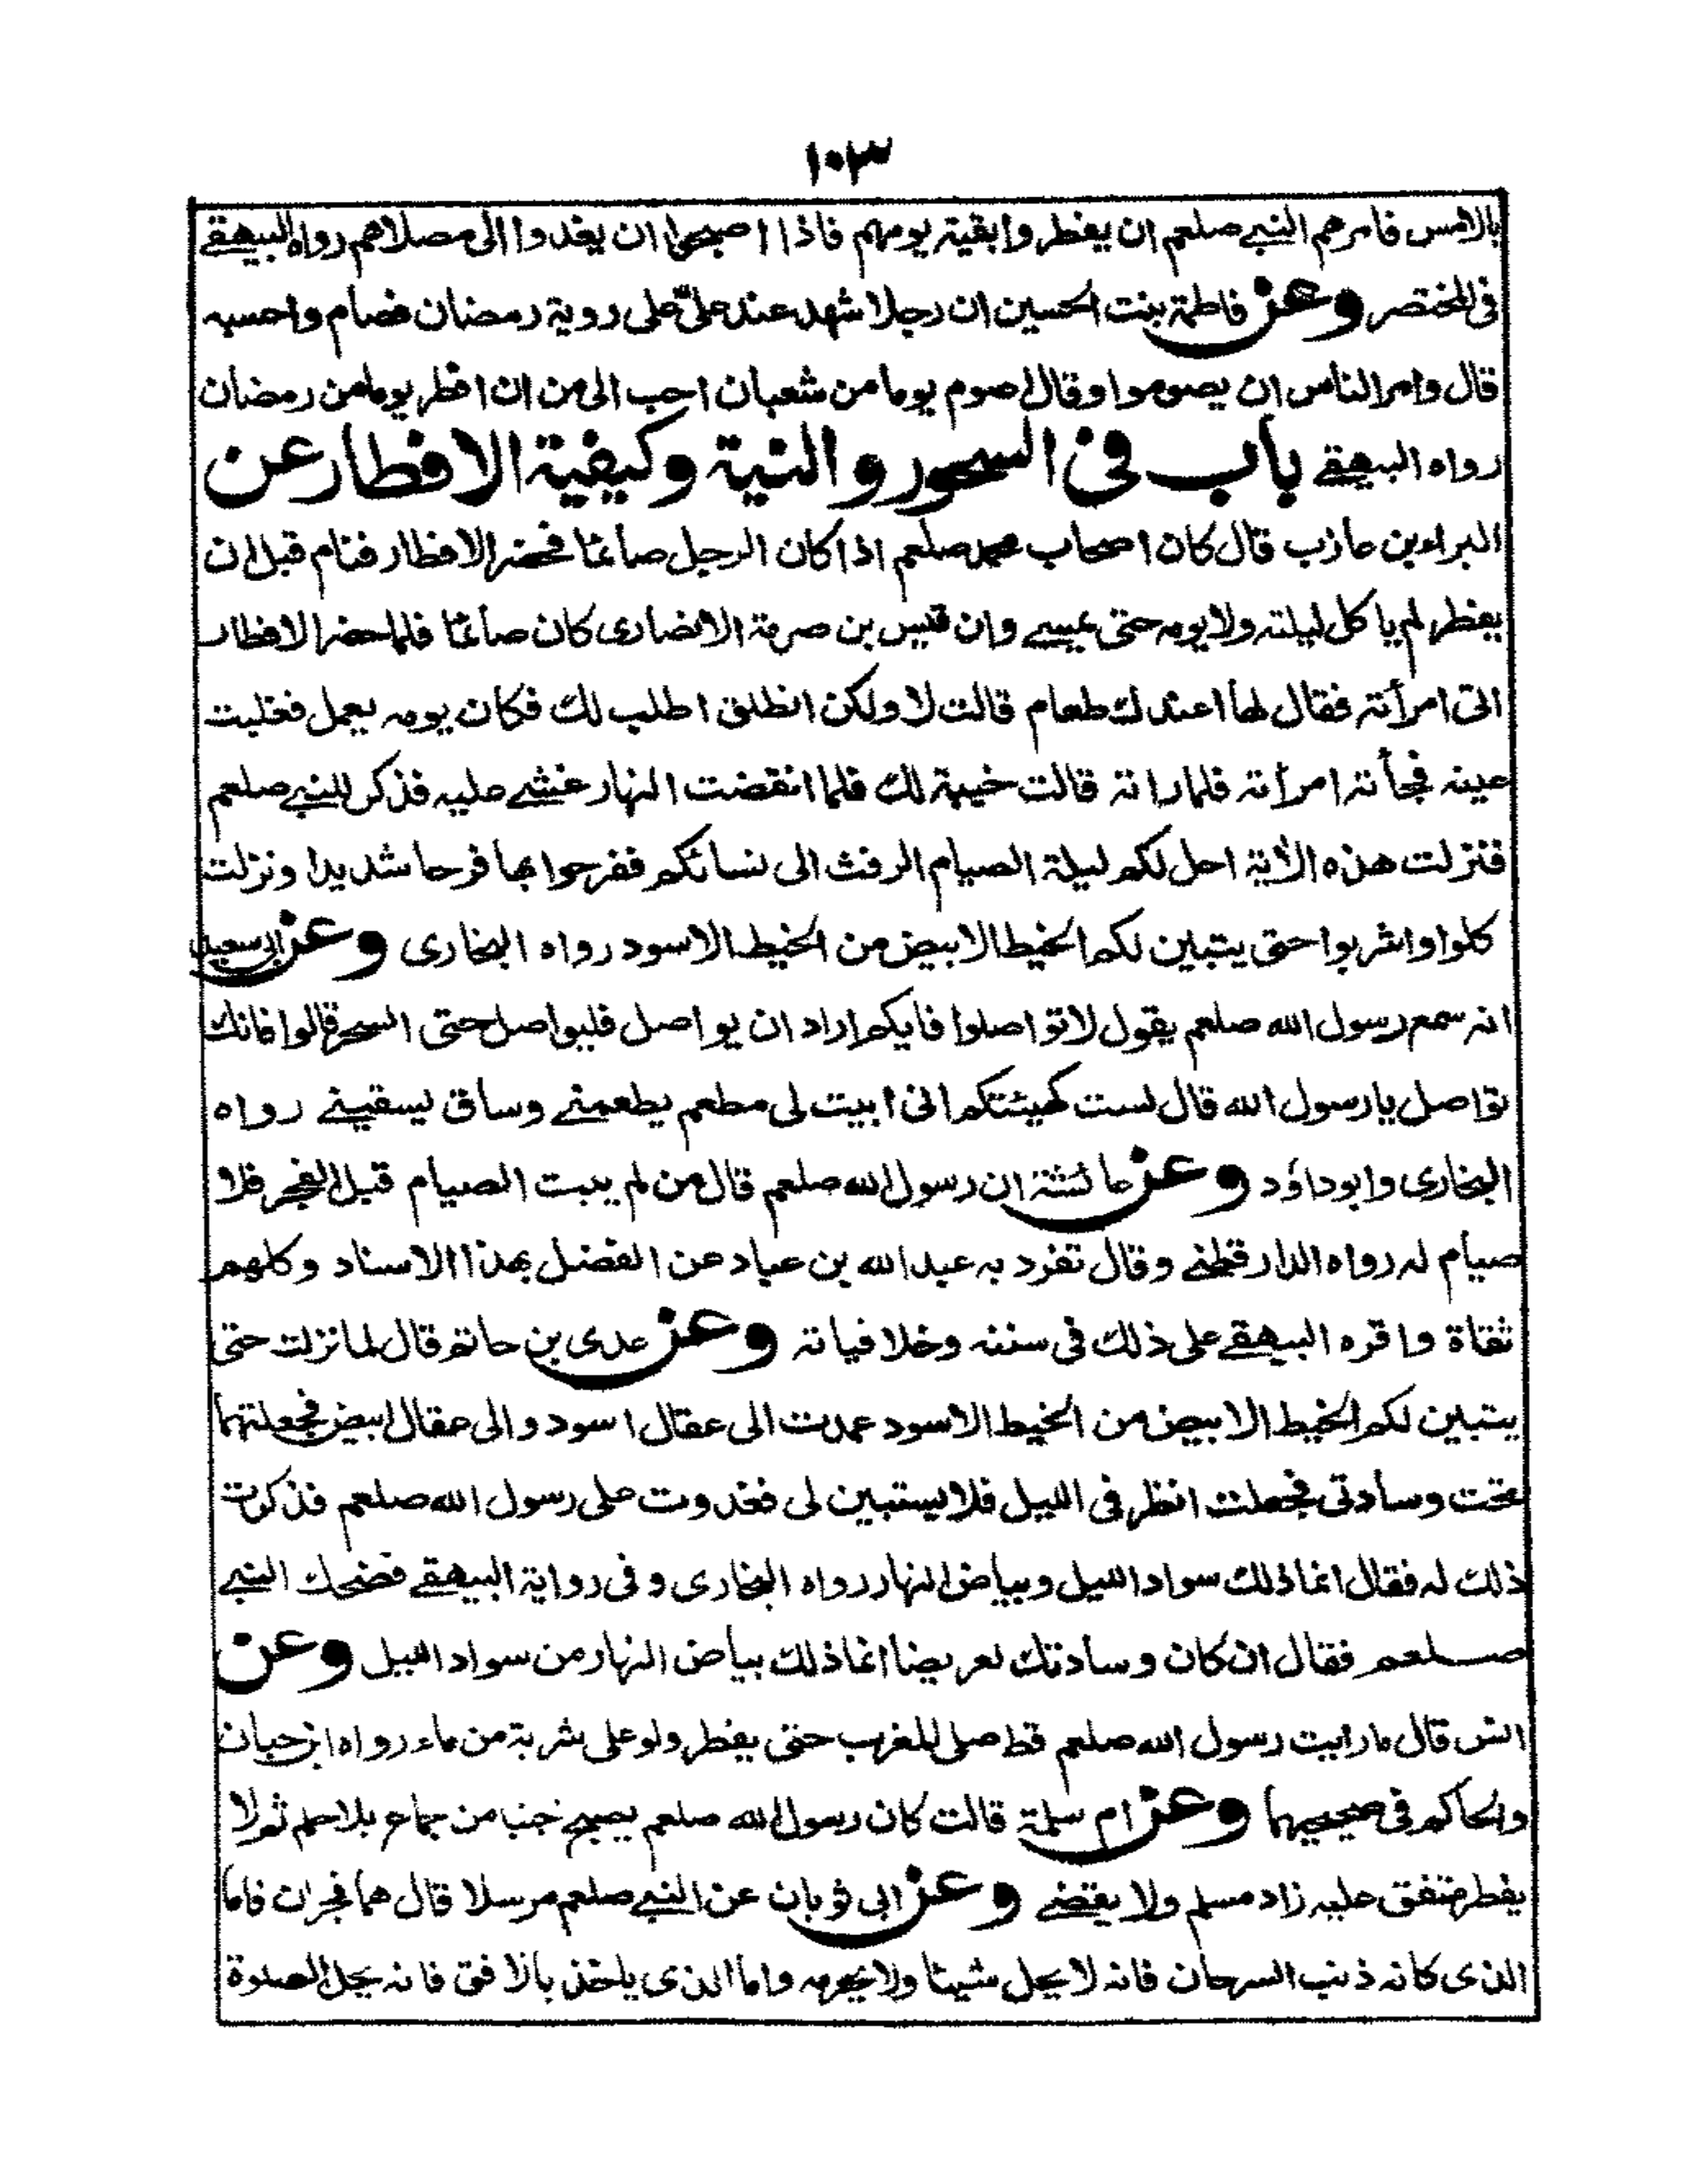 ١٠٣
بالامس فامرهم النبي صلعم ان يفطروا بقية يومهم فاذا اصبحوا ان يغدوا الى مصلاهم رواه البيهقي
في المختصر وعن فاطمة بنت الحسين ان رجلا شهد عند علي على روية رمضان فصام واحسبه
قال وامر الناس ان يصوموا وقال اصوم يوما من شعبان احب الى من ان افطر يوما من رمضان
رواه البيهقي باب في السحور والنية وكيفية الافطار عن
البراء بن عازب قال كان اصحاب محمد صلعم اذا كان الرجل صائما فحضر الافطار فنام قبل ان
يفطر لم ياكل ليلته ولا يومه حتى يمسي وان قيس بن صرمة الانصارى كان صائما فلما حضر الافطار
اتى امرأته فقال لها اعندك طعام قالت لا ولكن انطلق اطلب لك فكان يومه يعمل فغلبت
عينه فجأته امرأته فلما راته قالت خيبة لك فلما انقضت النهار غشي عليه فذكر للنبي صلعم
فنزلت هذه الأية احل لكم ليلة الصيام الرفث الى نسائكم ففرحوا بها فرحا شديدا ونزلت
كلوا واشربوا حتى يتبين لكم الخيط الابيض من الخيط الاسود رواه البخارى وعن ابي سعيد
انه سمع رسول الله صلعم يقول لا تواصلوا فايكم اراد ان يواصل فليواصل حتى السحر قالوا فانك
تواصل يا رسول الله قال لست كهيئتكم انى ابيت لى مطعم يطعمني وساق يسقيني رواه
البخارى وابو داؤد وعن عائشة ان رسول الله صلعم قال من لم يبت الصيام قبل الفجر فلا
صيام له رواه الدارقطني وقال تفرد به عبد الله بن عباد عن الفضل بهذا الاسناد وكلهم
ثقاة واقره البيهقي على ذلك فى سننه وخلافياته وعن عدى بن حاتم قال لما نزلت حتى
يتبين لكم الخيط الابيض من الخيط الاسود عمدت الى عقال اسود والى عقال ابيض فجعلتهما
تحت وسادتى فجعلت انظر فى الليل فلا يستبين لى فغدوت على رسول الله صلعم فذكرت
ذلك له فقال انما ذلك سواد الليل وبياض النهار رواه البخارى وفى رواية البيهقي فضحك النبي
صلعم فقال ان كان وسادتك لعريضا انما ذلك بياض النهار من سواد الليل وعن
انس قال ما رأيت رسول الله صلعم قط صلى المغرب حتى يفطر ولو على شربة من ماء رواه ابن حبان
والحاكم فى صحيحيهما وعن ام سلمة قالت كان رسول الله صلعم يصبح جنبا من جماع بلا حلم ثم لا
يفطر متفق عليه زاد مسلم ولا يقضي وعن ابى ثوبان عن النبي صلعم مرسلا قال هما فجران فاما
الذى كانه ذنب السرحان فانه لا يحل شيئا ولا يحرمه واما الذى ياخذ بالافق فانه يحل الصلوة